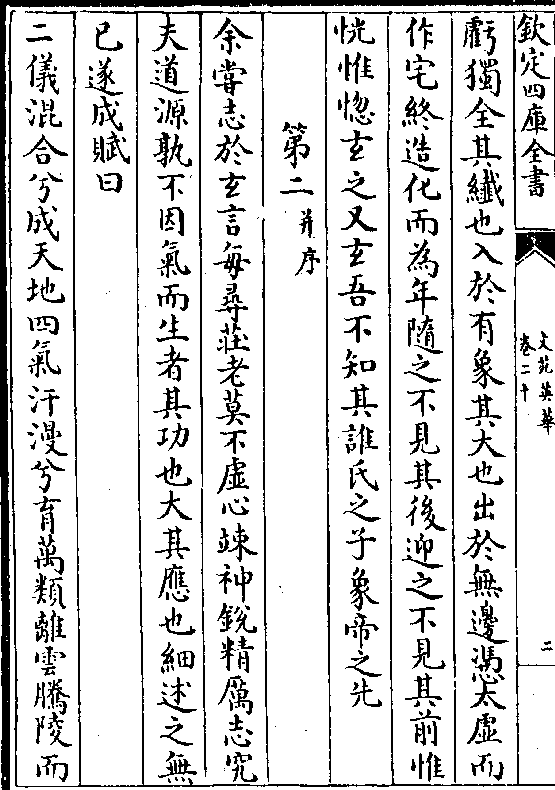 欽定四庫全書
文苑英華
卷二十
二
虧獨全其纎也入於有象其大也出於無邊憑太虛而
作宅終造化而為年隨之不見其後迎之不見其前惟
恍惟惚玄之又玄吾不知其誰氏之子象帝之先
第二并序
余嘗志於玄言每尋莊老莫不虛心竦神銳精厲志究
夫道源孰不因氣而生者其功也大其應也細述之無
已遂成賦曰
二儀混合兮成天地四氣汗漫兮育萬類離雲騰陵而